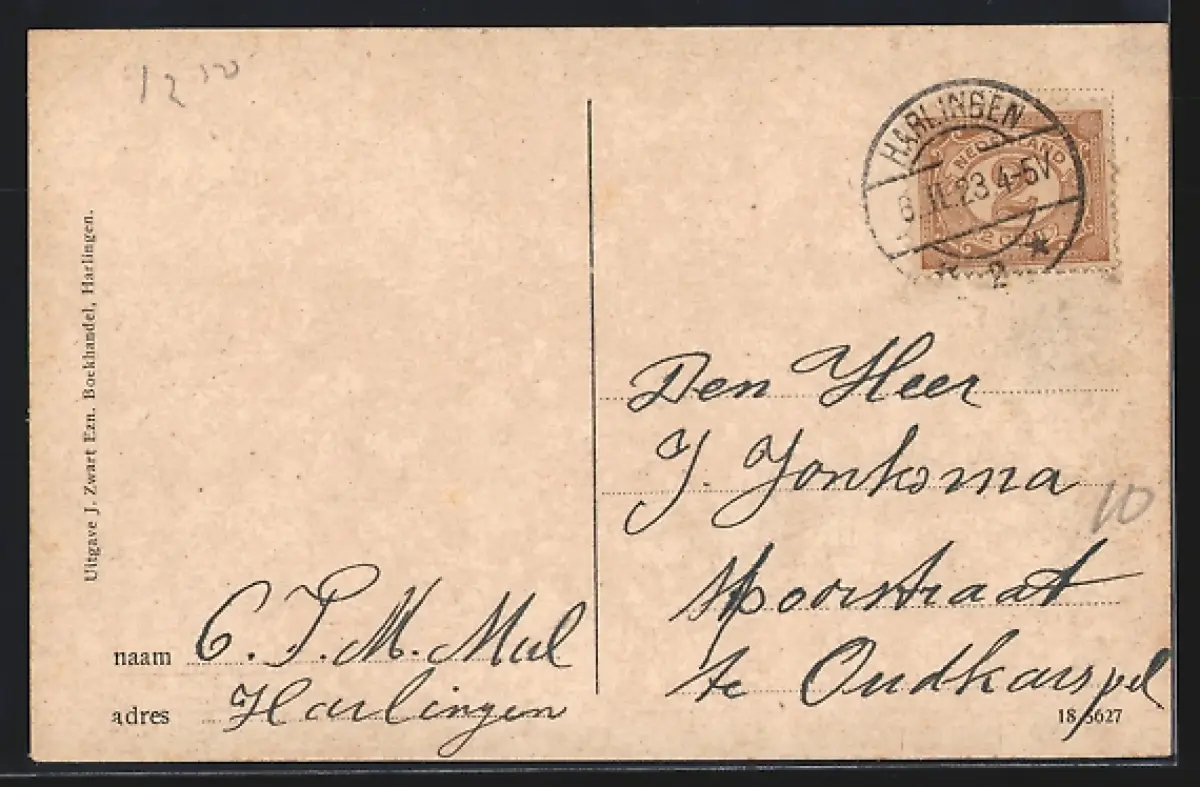 12 10
HARLINGEN
NEDERLAND
6.II.23 4-5V
2
2 CENT
* 2 *
Uitgave J. Zwart Ezn. Boekhandel, Harlingen.
Den Heer
J. Jonksma
10
Spoorstraat
te Oudkarspel
naam C. P. M. Mul
adres Harlingen
18 3627